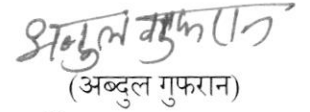 अब्दुल गुफरान
(अब्दुल गुफरान)